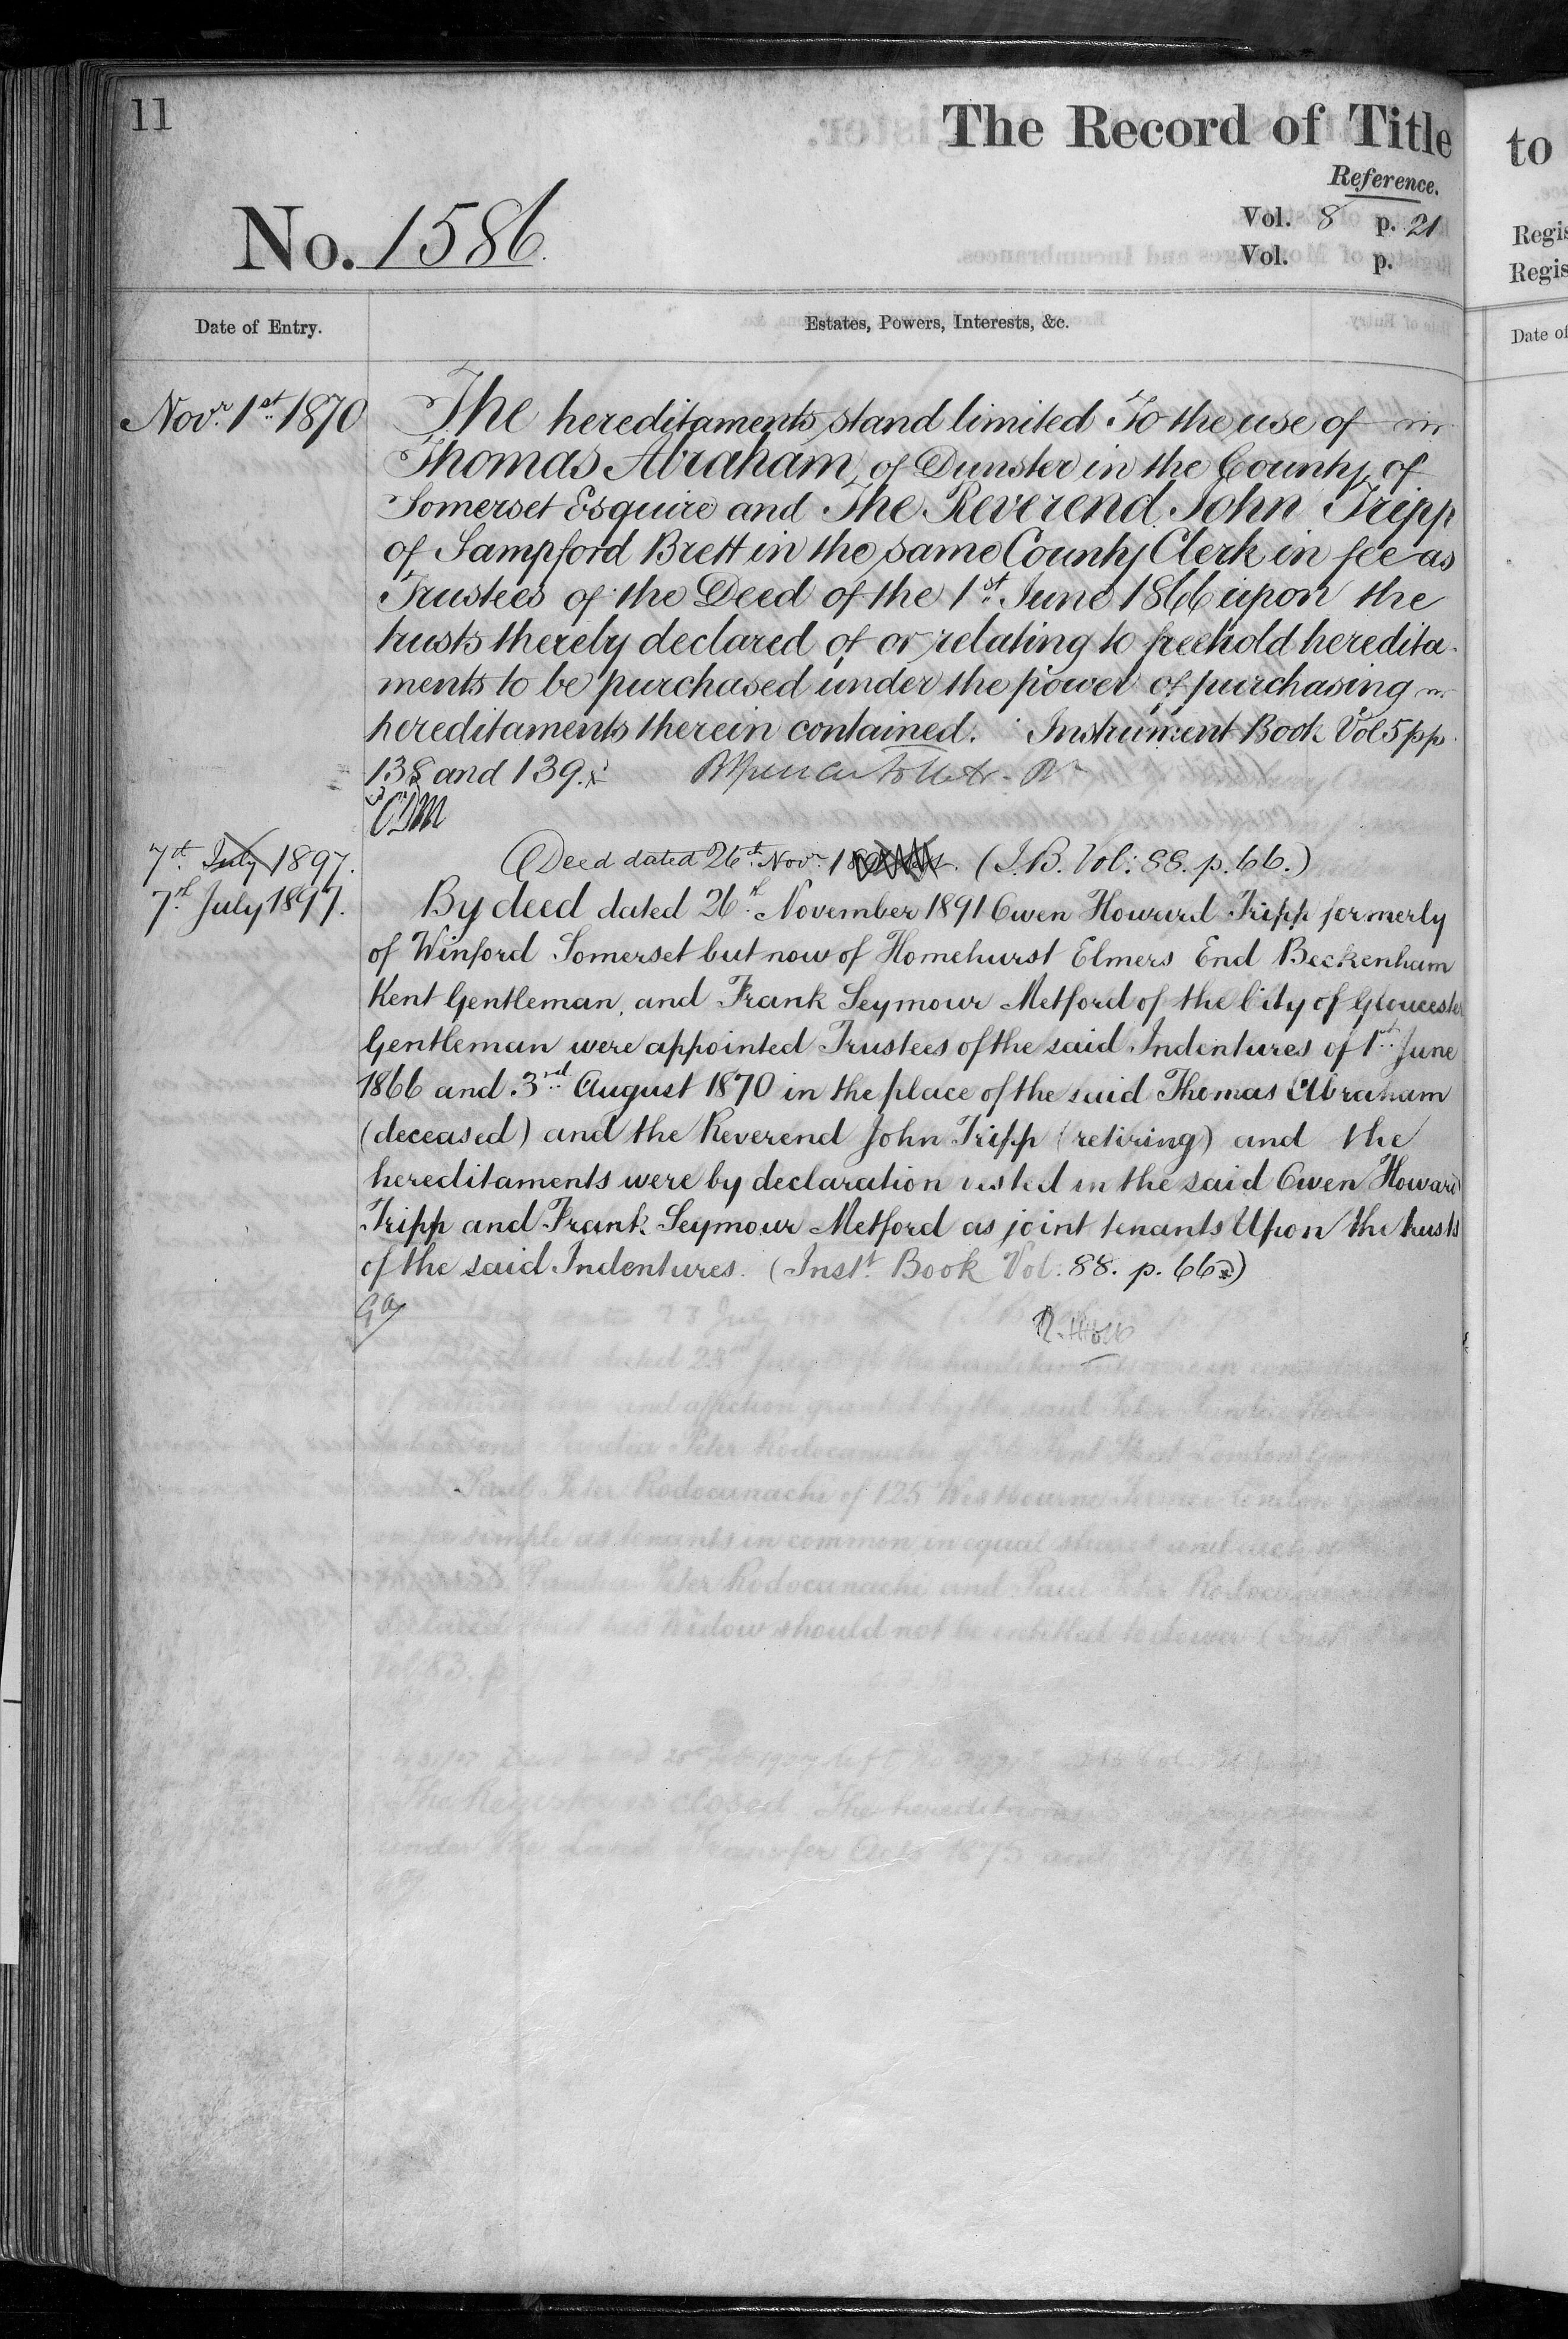 11
The Record of Title
to
Reference.
No. 1586.
Vol. 8 p. 21
Vol. p.
Regis
Regis
Date of Entry.
Estates, Powers, Interests, &c.
Date of
Novr. 1st. 1870
The hereditaments stand limited To the use of
Thomas Abraham, of Dunster in the County of
Somerset Esquire and The Reverend John Tripp
of Sampford Brett in the same County Clerk in fee as
Trustees of the Deed of the 1st. June 1866 upon the
trusts thereby declared of or relating to freehold heredita-
ments to be purchased under the power of purchasing
hereditaments therein contained. Instrument Book Vol 5 pp.
138 and 139.
CDM
7th July 1897.
Deed dated 26th. Novr. (I.B. Vol: 88. p. 66.)
7th July 1897.
By deed dated 26th. November 1891 Owen Howard Tripp formerly
of Winford Somerset but now of Homehurst Elmers End Beckenham
Kent Gentleman, and Frank Seymour Metford of the City of Gloucester
Gentleman were appointed Trustees of the said Indentures of 1st. June
1866 and 3rd August 1870 in the place of the said Thomas Abraham
(deceased) and the Reverend John Tripp (retiring) and the
hereditaments were by declaration vested in the said Owen Howard
Tripp and Frank Seymour Metford as joint tenants Upon the trusts
of the said Indentures. (Inst. Book Vol. 88. p. 66.)